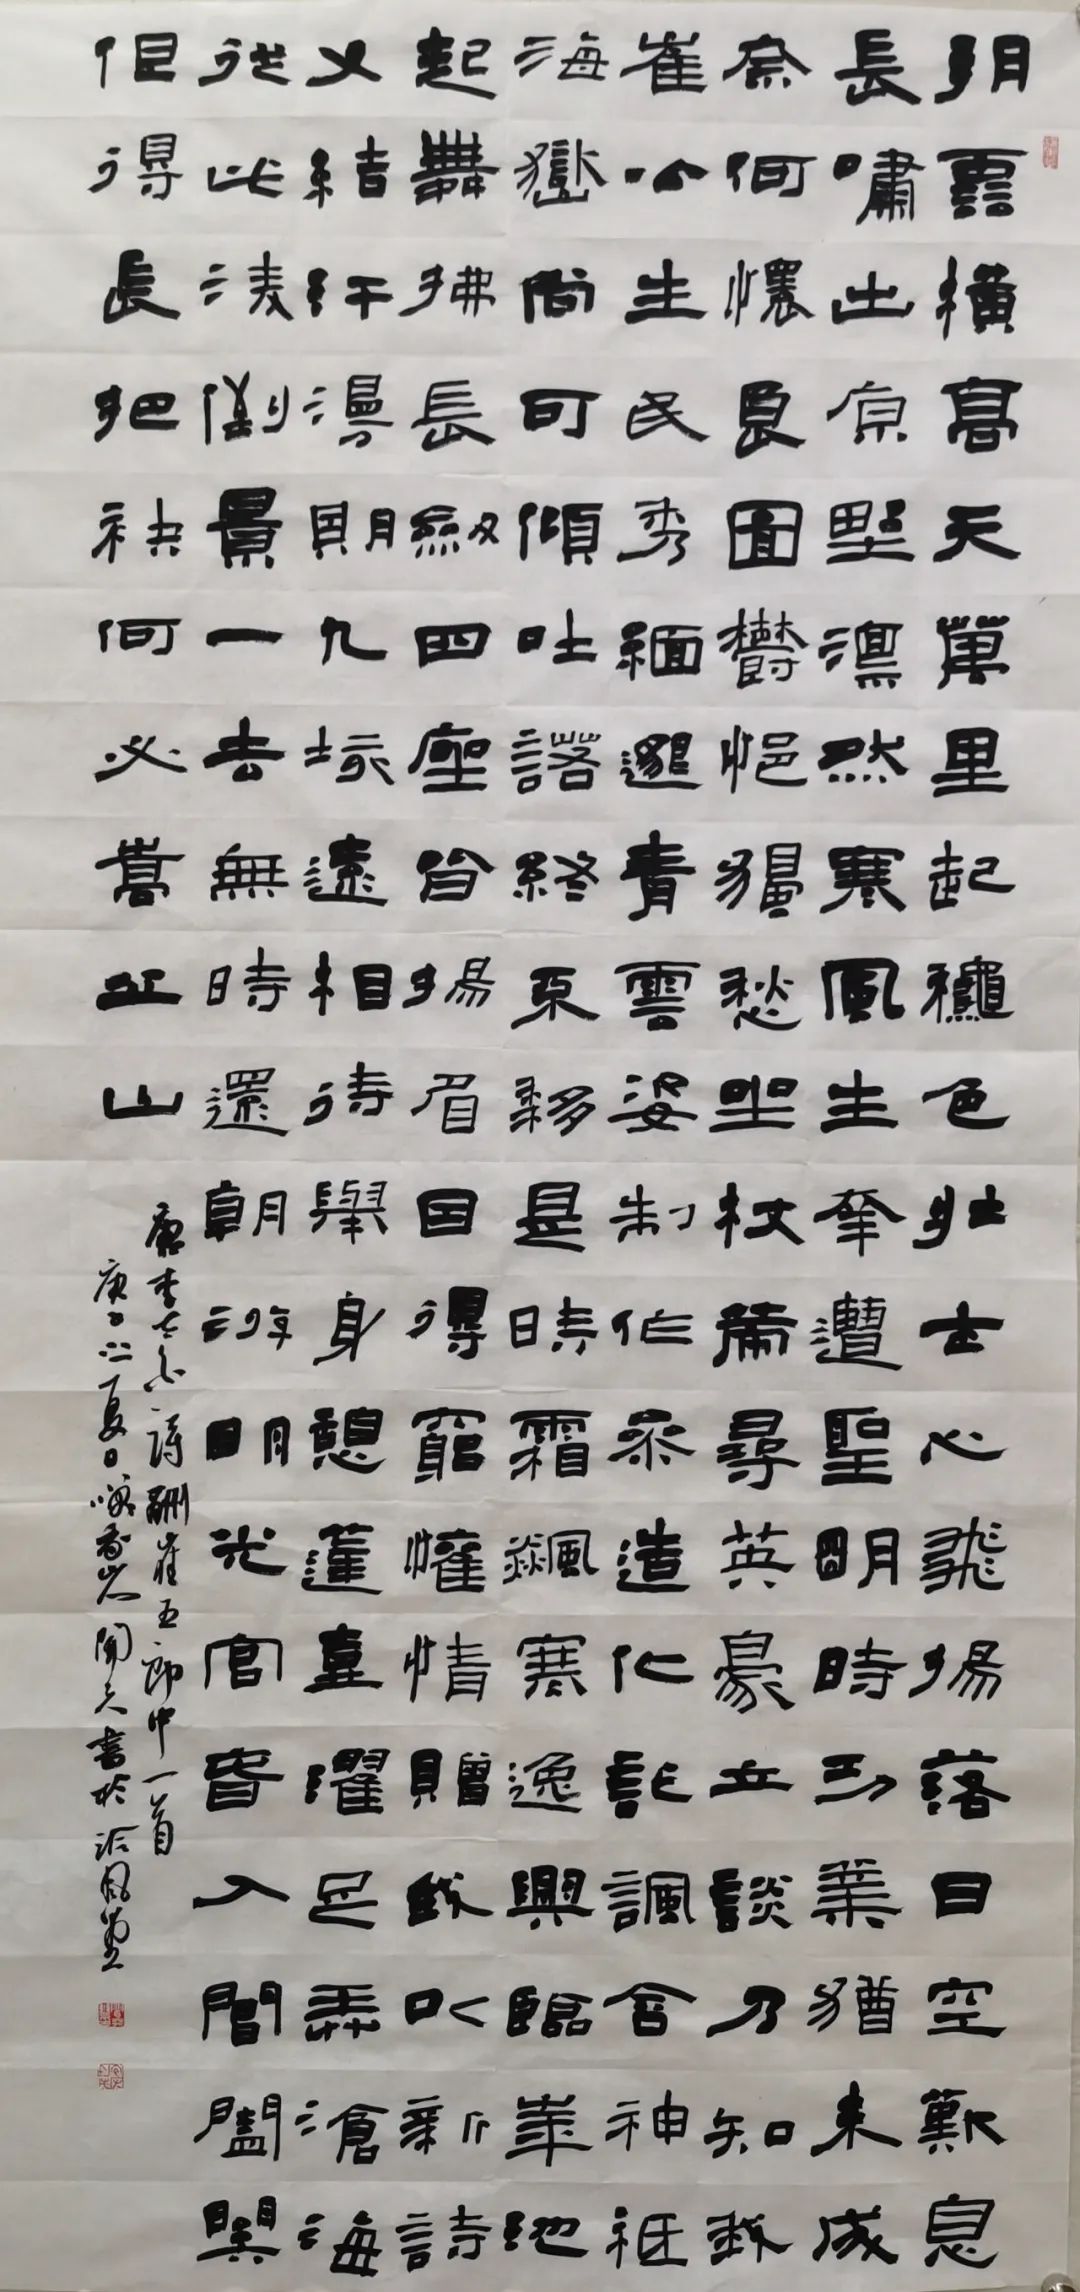 朔雲橫高天萬里起龝色壯士心飛揚落日空歎息
長嘯出原野凜然寒風生幸遭聖明時功業猶未成
奈何懷良圖鬱悒獨愁坐杖策尋英豪立談乃知我
崔公生民秀緬邈青雲姿制作參造化託諷含神祇
海嶽尚可傾吐諾終不移是時霜飆寒逸興臨華池
起舞拂長劍四座皆揚眉因得窮懽情贈我以新詩
又結汗漫期九垓遠相待舉身憩蓬壺濯足弄滄海
從此凌倒景一去無時還朝游明光宮暮入閶闔關
但得長把袂何必嵩丘山
唐李太白詩酬崔五郎中一首
庚子夏日書於